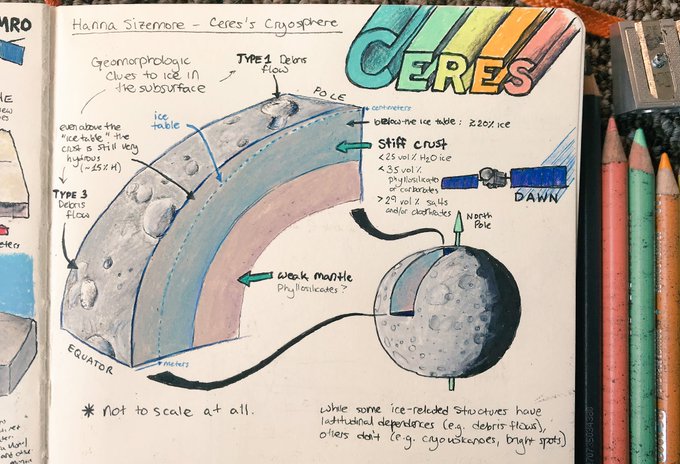 MRO
Hanna Sizemore - Ceres's Cryosphere
CERES
Geomorphologic
clues to ice in
the subsurface
TYPE 1 Debris
flow
POLE
centimeters
ice
table
below the ice table: ≥20% ice
even above the
"ice table," the
crust is still very
hydrous
(~15% H)
Stiff crust
<25 vol% H2O ice
<35 vol%
phyllosilicates
or carbonates
>29 vol%
and/or clathrates
DAWN
TYPE 3
Debris
flow
North
Pole
weak mantle
Phyllosilicates?
EQUATOR
meters
* not to scale at all.
While some ice-related structures have
latitudinal dependences (e.g. debris flows),
others don't (e.g. cryovolcanoes, bright spots)